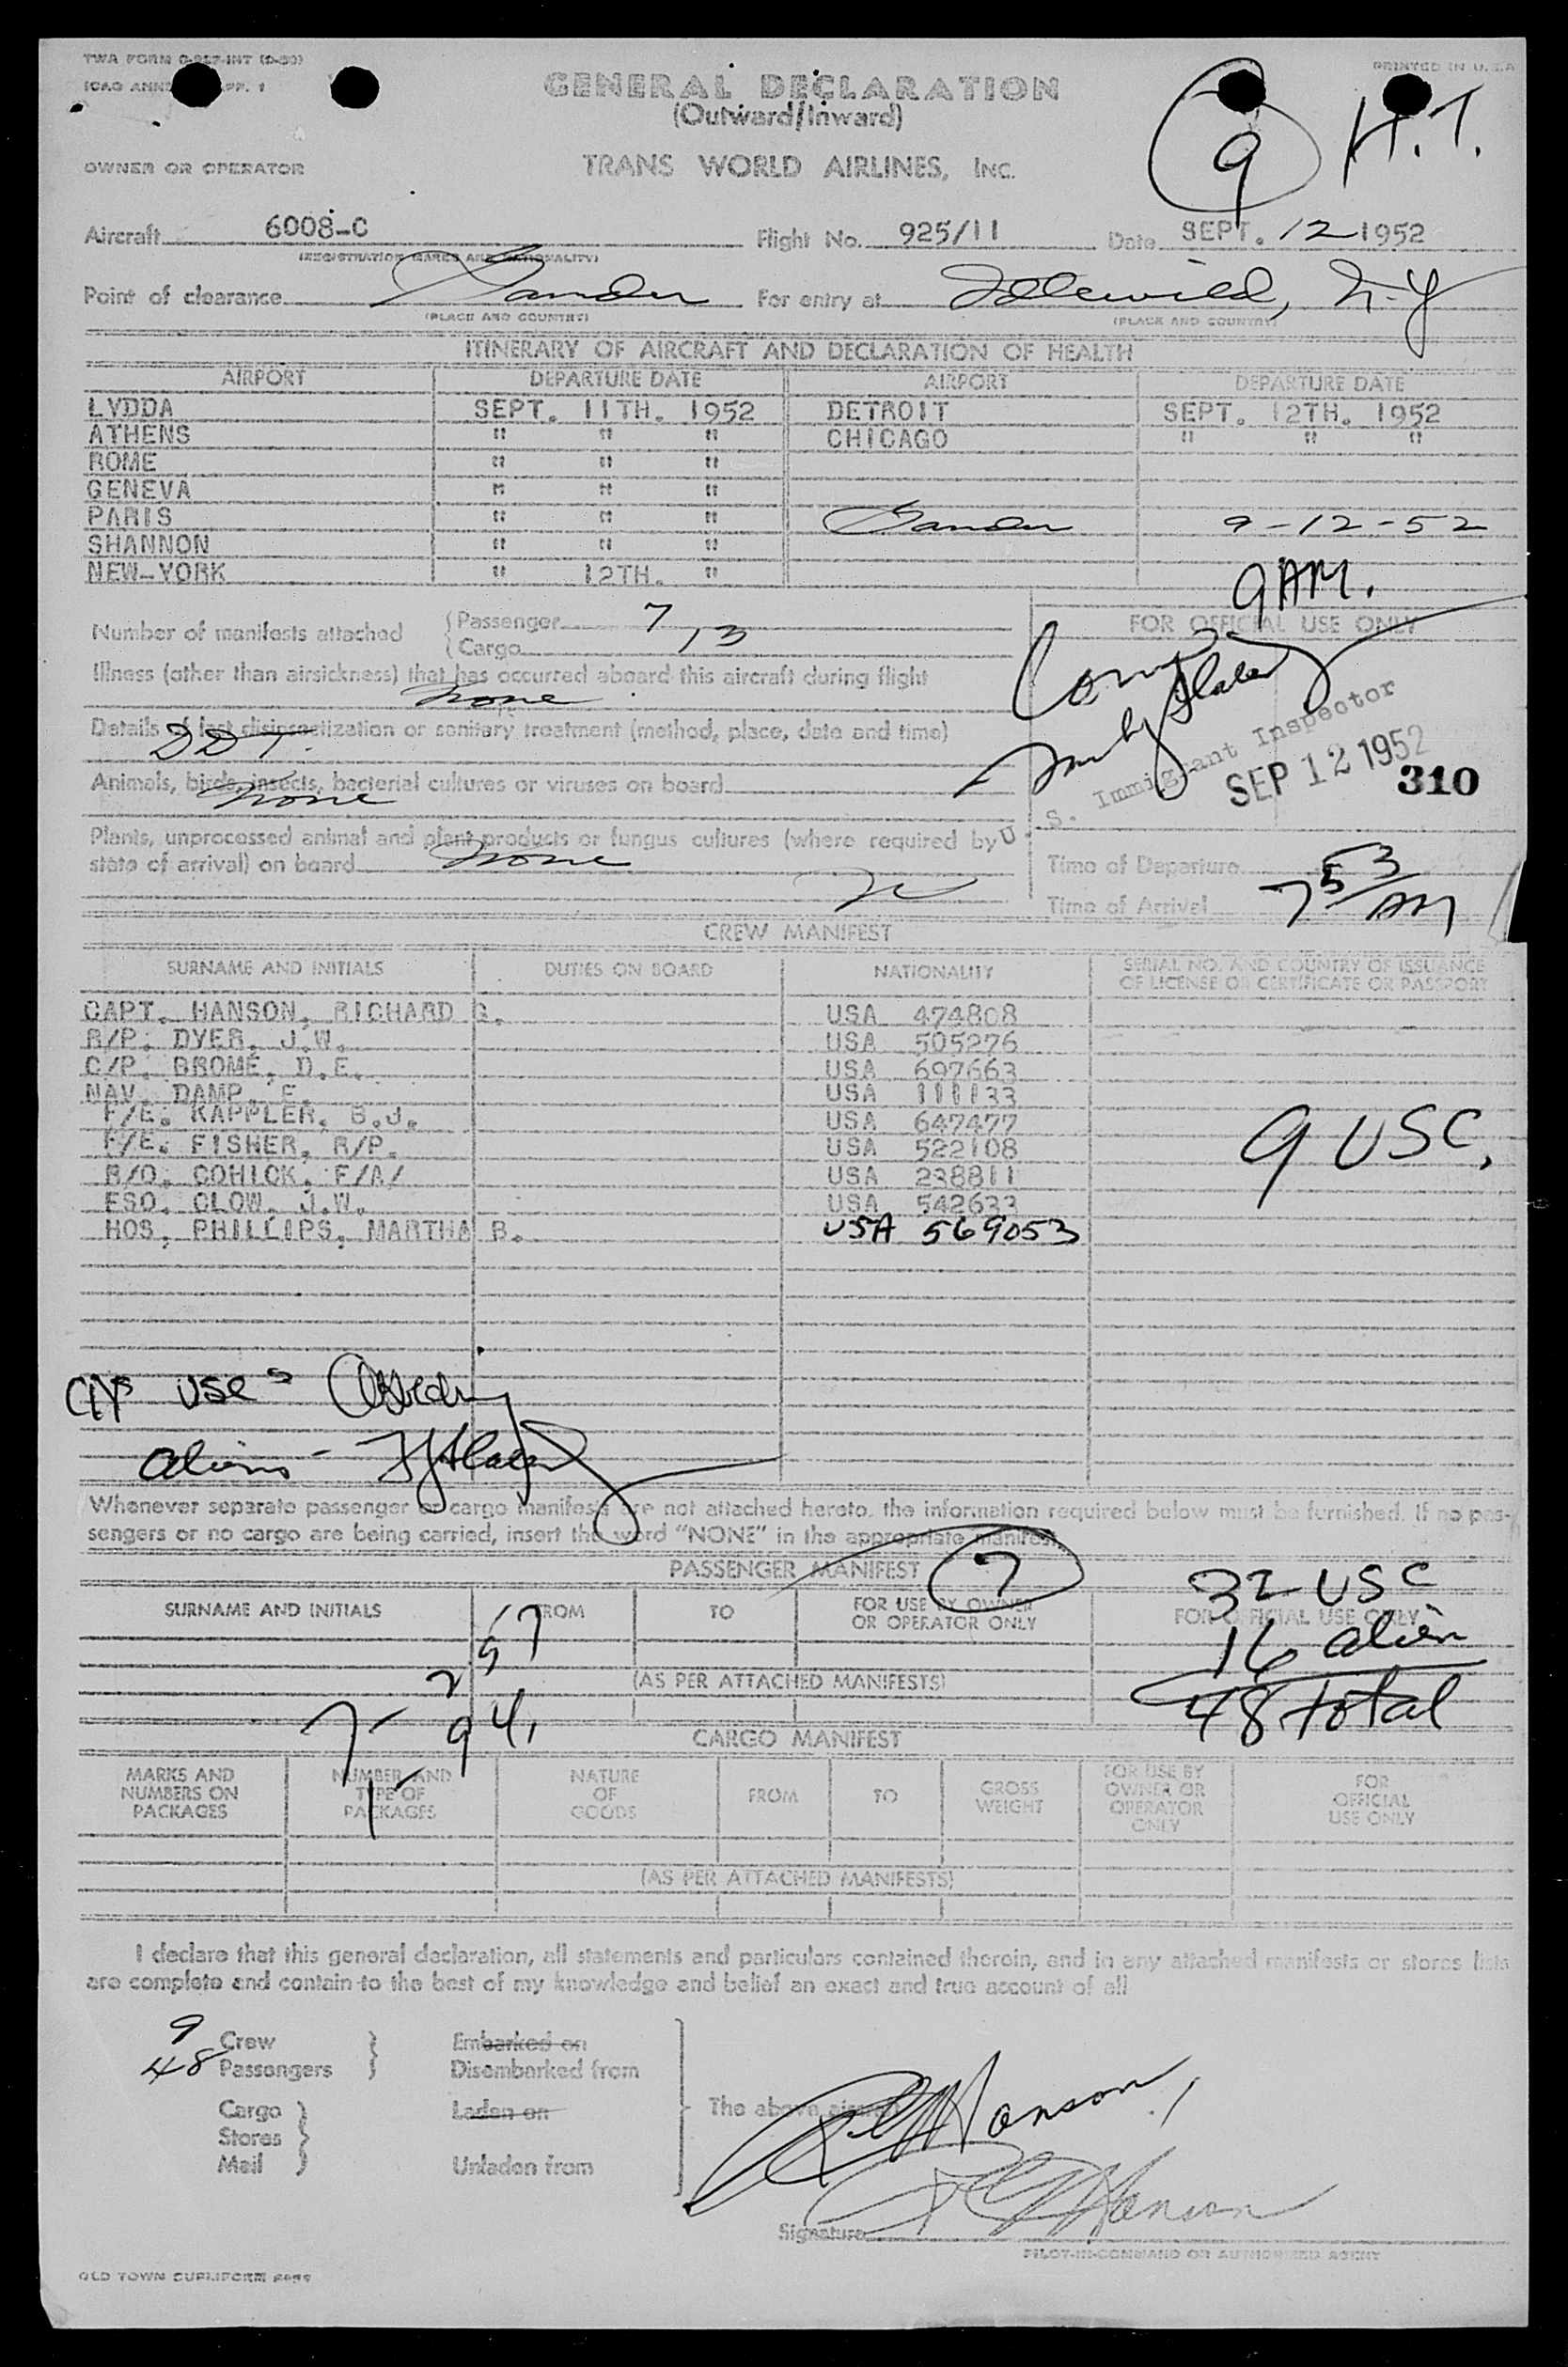 TWA FORM
ICAO ANNE PP. 1
PRINTED IN U.S.A
GENERAL DECLARATION
(Outward/Inward)
9 H.T.
OWNER OR OPERATOR
TRANS WORLD AIRLINES, INC.
Aircraft 6008-C Flight No. 925/11 Date SEPT. 12 1952
(REGISTRATION MARKS AND NATIONALITY)
Point of clearance Gander For entry at Idlewild, N.Y
(PLACE AND COUNTRY) (PLACE AND COUNTRY)
ITINERARY OF AIRCRAFT AND DECLARATION OF HEALTH
AIRPORT DEPARTURE DATE AIRPORT DEPARTURE DATE
LYDDA SEPT. 11TH. 1952 DETROIT SEPT. 12TH. 1952
ATHENS " " " CHICAGO " " "
ROME " " "
GENEVA " " "
PARIS " " " Gander 9-12-52
SHANNON " " "
NEW-YORK " 12TH. "
9 AM.
Number of manifests attached Passenger 7
Cargo 13
FOR OFFICIAL USE ONLY
Illness (other than airsickness) that has occurred aboard this aircraft during flight
none
Details of last disinsectization or sanitary treatment (method, place, date and time)
DDT.
Animals, birds, insects, bacterial cultures or viruses on board
none
U. S. Immigrant Inspector
SEP 12 1952
310
Plants, unprocessed animal and plant products or fungus cultures (where required by
state of arrival) on board none
Time of Departure
Time of Arrival 7 53 AM
CREW MANIFEST
SURNAME AND INITIALS DUTIES ON BOARD NATIONALITY SERIAL NO. AND COUNTRY OF ISSUANCE
OF LICENSE OR CERTIFICATE OR PASSPORT
CAPT. HANSON, RICHARD G. USA 474808
R/P. DYER, J.W. USA 505276
C/P. BROME, D.E. USA 697663
NAV. DAMP, E. USA 111133
F/E. KAPPLER, B.J. USA 647477
F/E. FISHER, R/P. USA 522108
R/O. COHICK, F/A/ USA 238811
ESO. CLOW, J.W. USA 542633
HOS. PHILLIPS, MARTHA B. USA 569053
9 USC.
USC's
Aliens -
Whenever separate passenger or cargo manifests are not attached hereto, the information required below must be furnished. If no pas-
sengers or no cargo are being carried, insert the word "NONE" in the appropriate manifest.
PASSENGER MANIFEST 7
SURNAME AND INITIALS FROM TO FOR USE BY OWNER
OR OPERATOR ONLY
FOR OFFICIAL USE ONLY
32 USC
16 alien
48 total
(AS PER ATTACHED MANIFESTS)
CARGO MANIFEST
MARKS AND
NUMBERS ON
PACKAGES
NUMBER AND
TYPE OF
PACKAGES
NATURE
OF
GOODS
FROM
TO
GROSS
WEIGHT
FOR USE BY
OWNER OR
OPERATOR
ONLY
FOR
OFFICIAL
USE ONLY
(AS PER ATTACHED MANIFESTS)
I declare that this general declaration, all statements and particulars contained therein, and in any attached manifests or stores lists
are complete and contain to the best of my knowledge and belief an exact and true account of all
9 Crew Embarked on
48 Passengers Disembarked from
Cargo Laden on The above aircraft
Stores
Mail Unladen from
R G Hanson
Signature R G Hanson
PILOT-IN-COMMAND OR AUTHORIZED AGENT
OLD TOWN DUPLIFORM